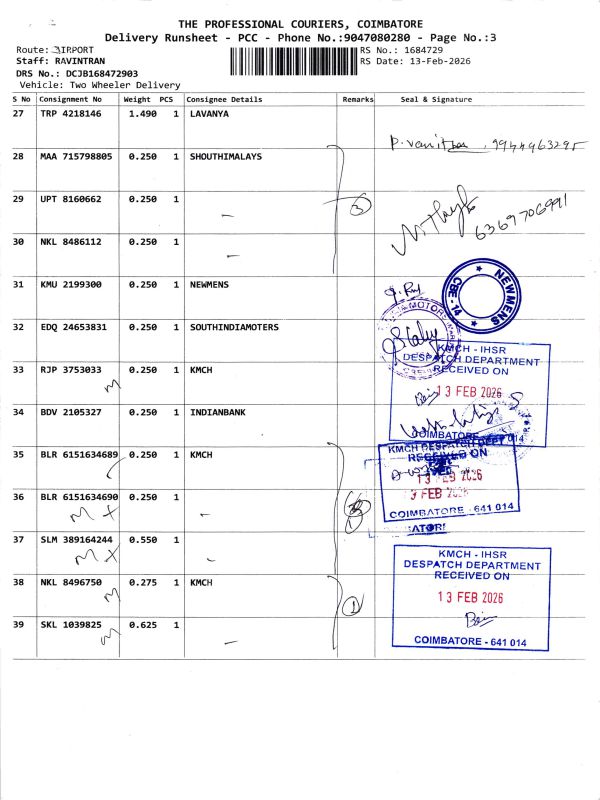 THE PROFESSIONAL COURIERS, COIMBATORE
Delivery Runsheet - PCC - Phone No.:9047080280 - Page No.:3
Route: AIRPORT
RS No.: 1684729
Staff: RAVINTRAN
RS Date: 13-Feb-2026
DRS No.: DCJB168472903
Vehicle: Two Wheeler Delivery
S No Consignment No Weight PCS Consignee Details Remarks Seal & Signature
27 TRP 4218146 1.490 1 LAVANYA
P. Vanitha 9944963295
28 MAA 715798805 0.250 1 SHOUTHIMALAYS
29 UPT 8160662 0.250 1 — 3
6369706991
30 NKL 8486112 0.250 1 —
31 KMU 2199300 0.250 1 NEWMENS
NEWMENS CBE-14
32 EDQ 24653831 0.250 1 SOUTHINDIAMOTERS
33 RJP 3753033 0.250 1 KMCH
M
KMCH - IHSR
DESPATCH DEPARTMENT
RECEIVED ON
13 FEB 2026
34 BDV 2105327 0.250 1 INDIANBANK
COIMBATORE
35 BLR 6151634689 0.250 1 KMCH
KMCH DESPATCH DEPT
RECEIVED ON
13 FEB 2026
36 BLR 6151634690 0.250 1 —
M x
3 FEB 202
COIMBATORE - 641 014
37 SLM 389164244 0.550 1
M x
38 NKL 8496750 0.275 1 KMCH
M
1
KMCH - IHSR
DESPATCH DEPARTMENT
RECEIVED ON
13 FEB 2026
39 SKL 1039825 0.625 1 —
M
COIMBATORE - 641 014